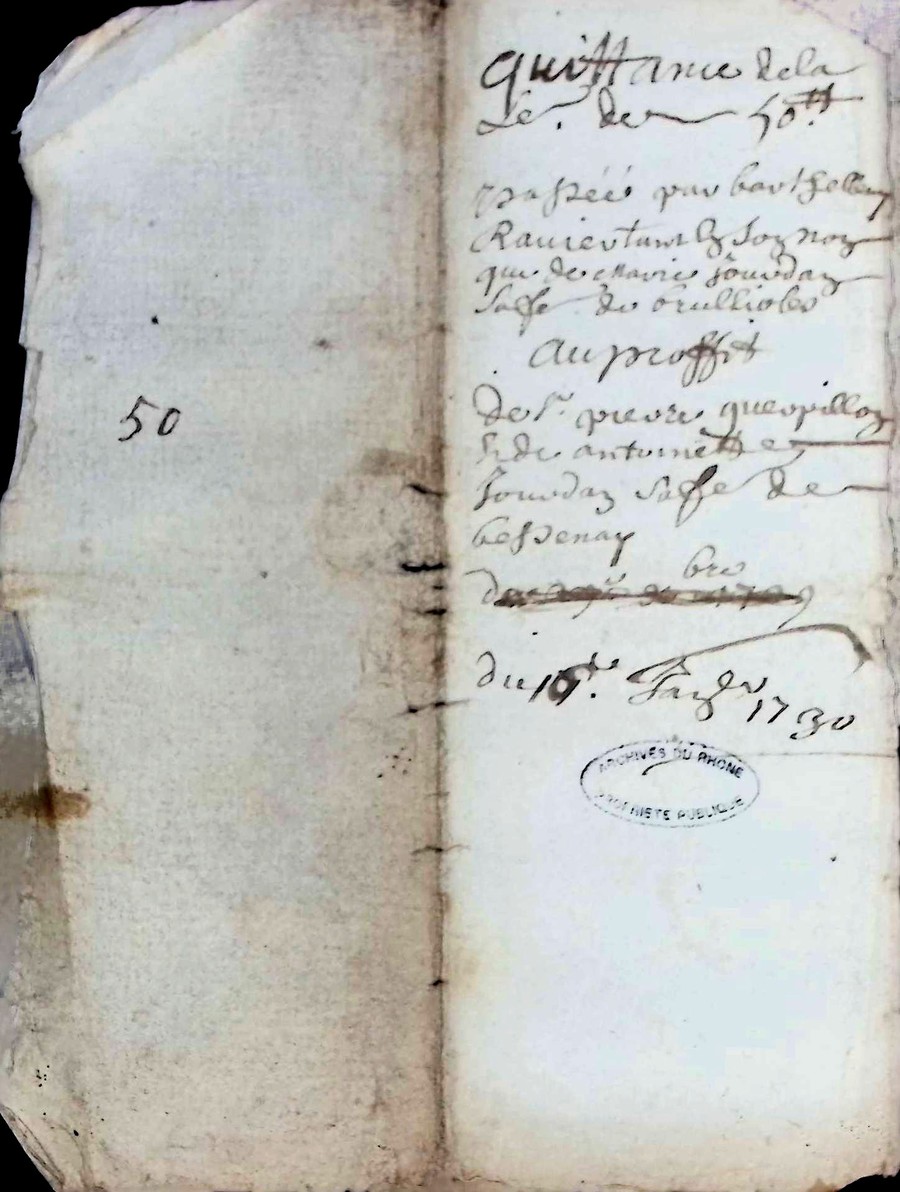 50
Quittance de la
Se. de 50 tt
passéé par barthellemy
Ravier tant en son nom
que de marie Jourdan
Sa fe de brulliolles
au proffit
de Sr. pierre guerpillon
& de antoinette
Jourdan Sa fe de
bessenay
bre
du Janvr 1730
ARCHIVES DU RHONE
PROPRIETE PUBLIQUE